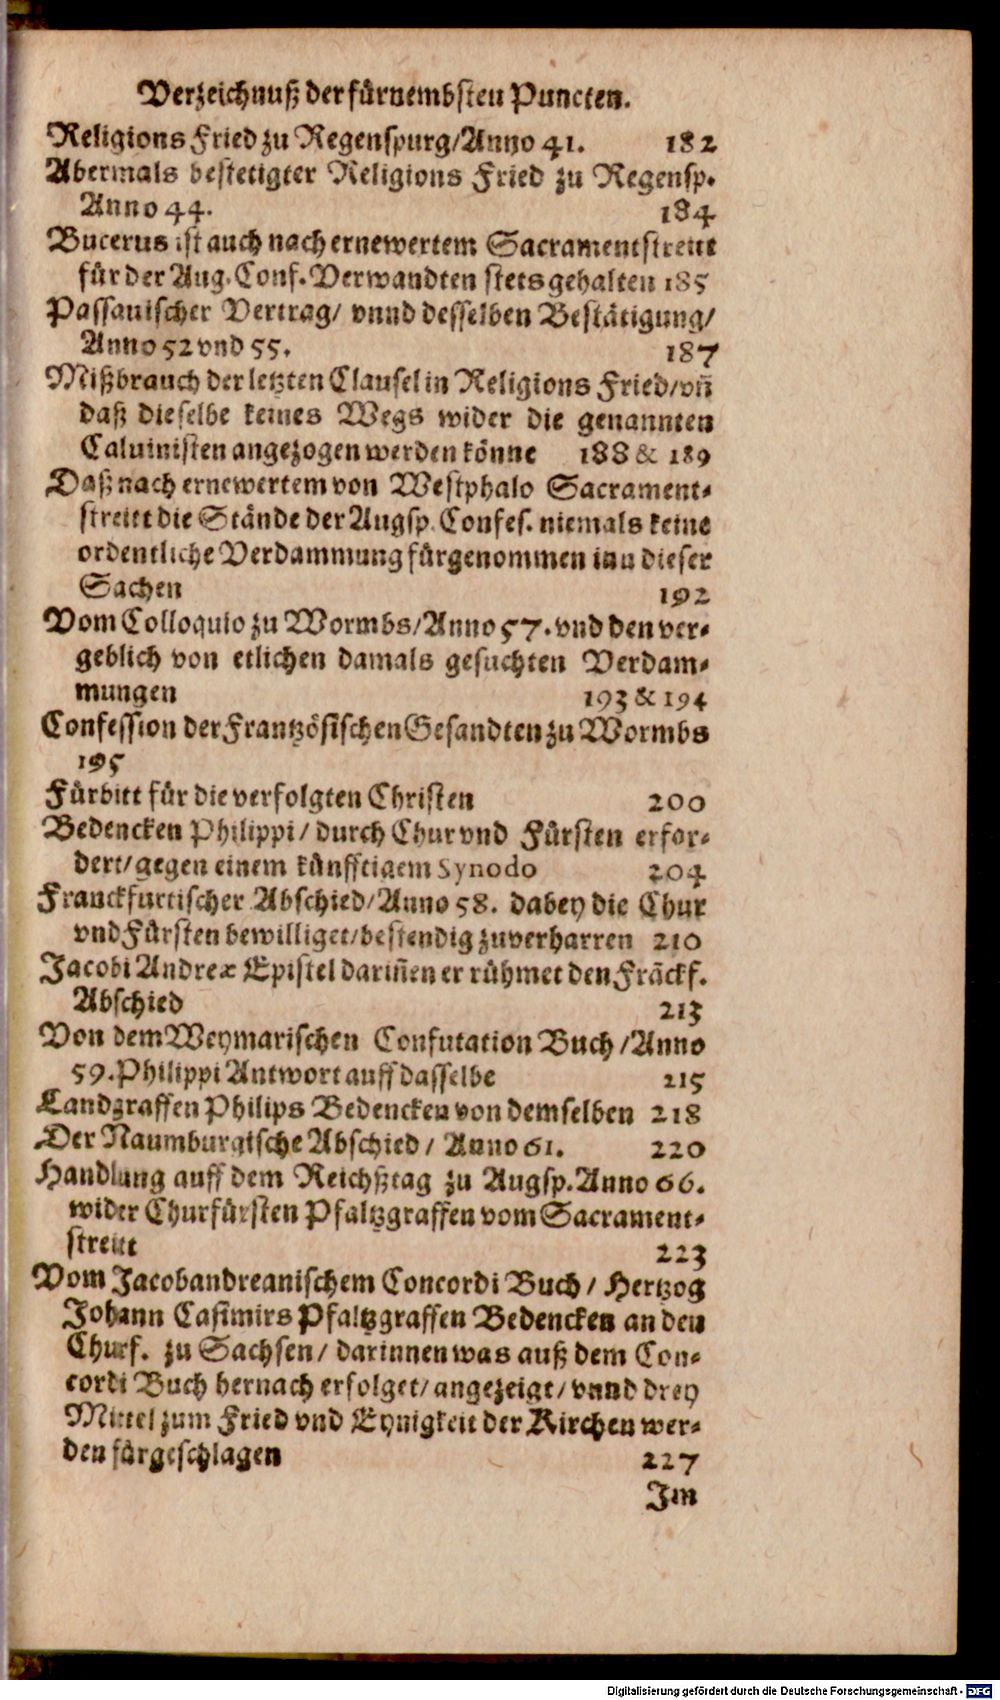 Verzeichnuß der fürnembsten Puncten.
Religions Fried zu Regenspurg/Anno 41. 182
Abermals bestetigter Religions Fried zu Regensp.
Anno 44. 184
Bucerus ist auch nach ernewertem Sacramentstreitt
für der Aug. Conf. Verwandten stets gehalten 185
Passauischer Vertrag/ vnnd desselben Bestätigung/
Anno 52 vnd 55. 187
Mißbrauch der letzten Clausel in Religions Fried/vñ
daß dieselbe keines Wegs wider die genannten
Caluinisten angezogen werden könne 188 & 189
Daß nach ernewertem von Westphalo Sacrament-
streitt die Stände der Augsp. Confes. niemals keine
ordentliche Verdammung fürgenommen inn dieser
Sachen 192
Vom Colloquio zu Wormbs/Anno 57. vnd den ver-
geblich von etlichen damals gesuchten Verdam-
mungen 193 & 194
Confession der Frantzösischen Gesandten zu Wormbs
195
Fürbitt für die verfolgten Christen 200
Bedencken Philippi/ durch Chur vnd Fürsten erfor-
dert/gegen einem künfftigem Synodo 204
Franckfurtischer Abschied/Anno 58. dabey die Chur
vnd Fürsten bewilliget/bestendig zuverharren 210
Jacobi Andreæ Epistel dariñen er rühmet den Fräckf.
Abschied 213
Von dem Weymarischen Confutation Buch/Anno
59. Philippi Antwort auff dasselbe 215
Landgraffen Philips Bedencken von demselben 218
Der Naumburgische Abschied/ Anno 61. 220
Handlung auff dem Reichßtag zu Augsp. Anno 66.
wider Churfürsten Pfaltzgraffen vom Sacrament-
streitt 223
Vom Jacobandreanischem Concordi Buch/ Hertzog
Johann Casimirs Pfaltzgraffen Bedencken an den
Churf. zu Sachsen/ darinnen was auß dem Con-
cordi Buch hernach erfolget/angezeigt/vnnd drey
Mittel zum Fried vnd Eynigkeit der Kirchen wer-
den fürgeschlagen 227
Im
Digitalisierung gefördert durch die Deutsche Forschungsgemeinschaft - DFG